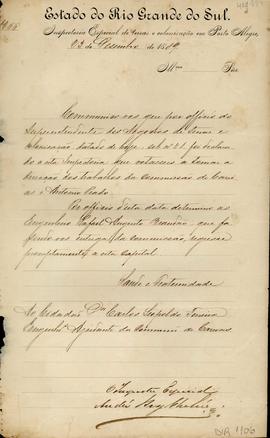 Estado do Rio Grande do Sul.
Inspectoria Especial de terras e colonisação em Porto Alegre,
de Dezembro de 18
Ill.mo Snr.
Communico vos que por officio do
Superintendente dos Negocios de Terras e
Colonisação, datado de hoje, sob nº 21 foi declara
do a esta Inspectoria que voltasseis a tomar a
direcção dos trabalhos da Commissão de
e Antonio Prado.
Por officio d'esta data determino ao
Engenheiro Rafael Augusto Brandão, que fa
sendo vos entrega da commissão, regresse
promptamente a esta Capital.
Saude e Fraternidade
Ao Cidadão Dr. Carlos Leopoldo
Engenhr.º Ajudante da Commissão de
O Inspector Especial
DIR 1106